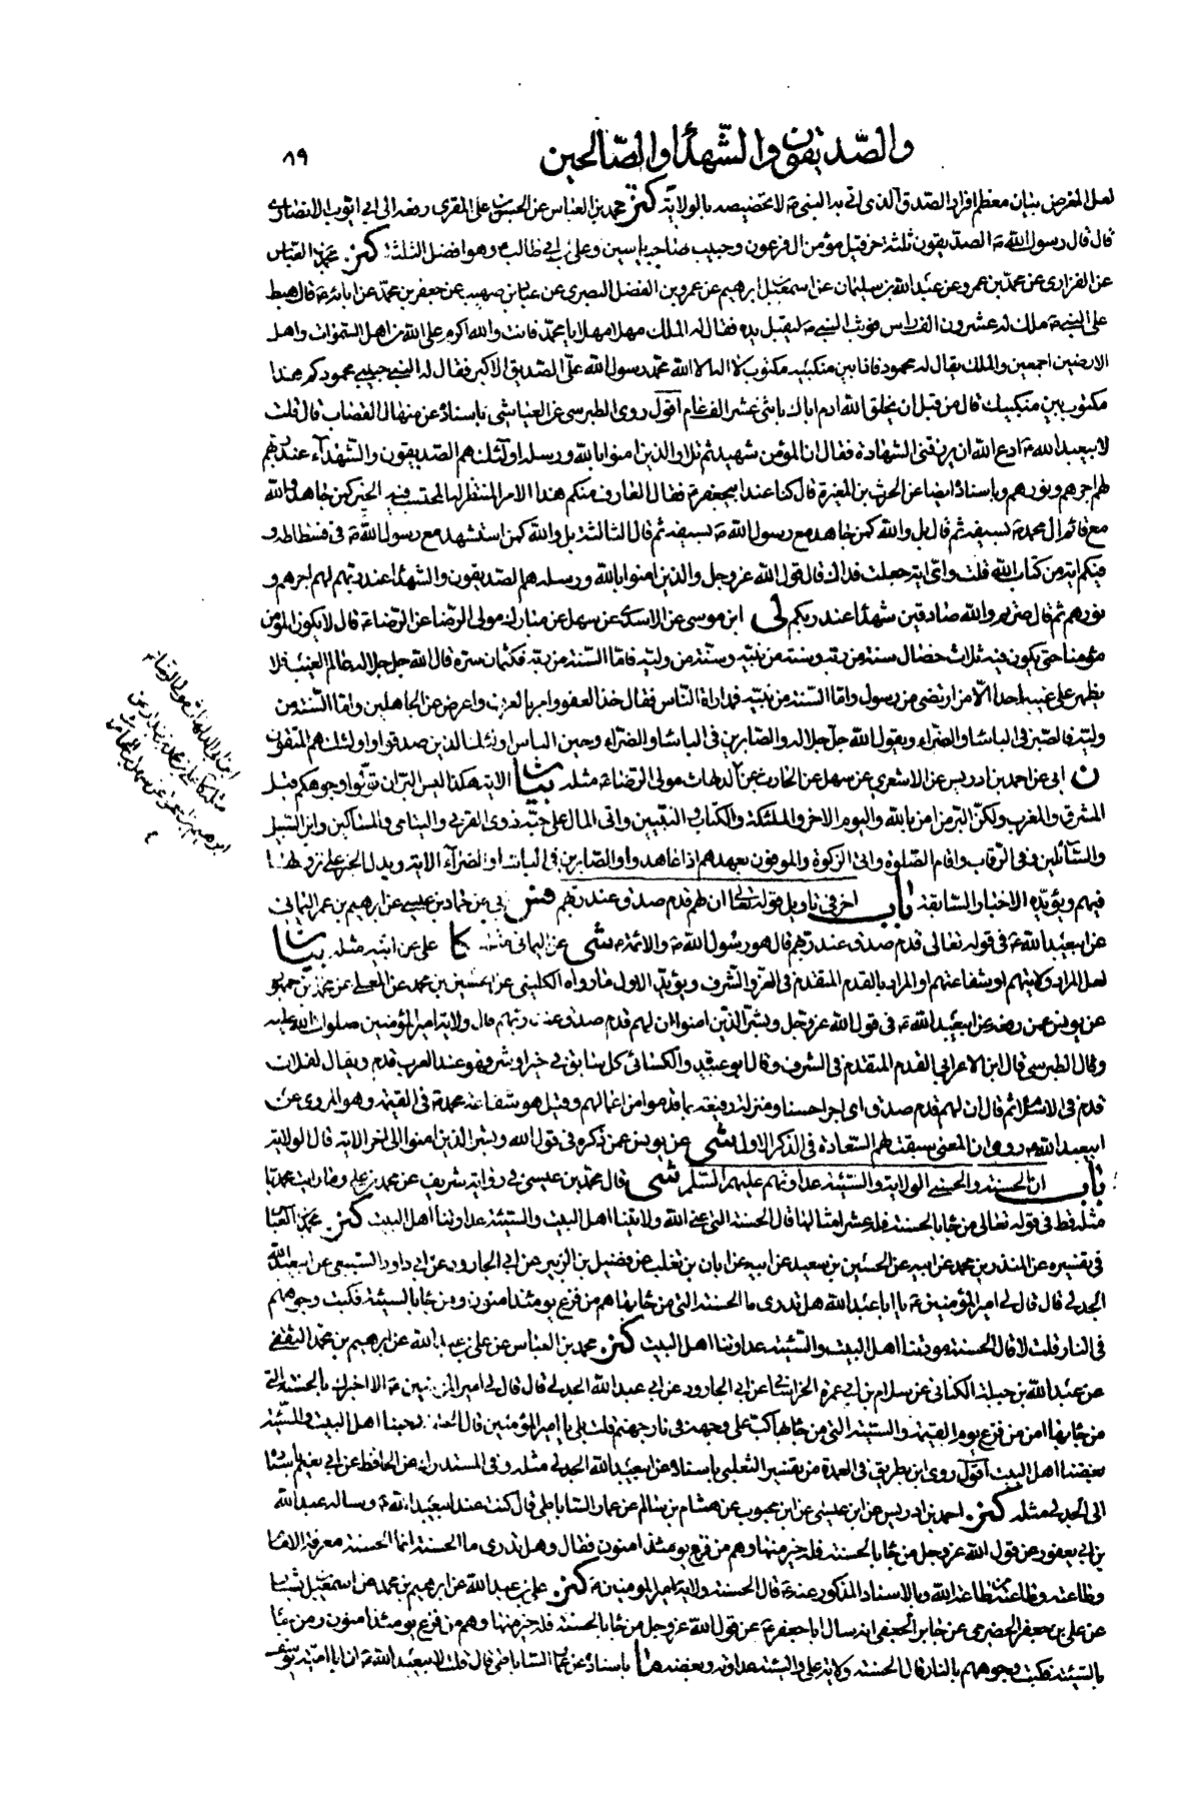 والصّديقون والشّهداء والصّالحين
٨٩
لعل الغرض بيان معظم افراد الصّدق الذى اتى به النبى ص لا تخصيصه بالولاية كنز محمد بن العباس عن الحسن بن على المقرى رفعه الى ابى ايوب الانصارى
قال قال رسول الله ص الصدّيقون ثلثة حزقيل مؤمن ال فرعون وحبيب صاحب ياسين وعلى بن ابى طالب ع وهو افضل الثلثة كنز محمد بن العباس
عن الفزارى عن محمد بن عمرو عن عبد الله بن سليمان عن اسمعيل بن ابرهيم عن عمرو بن الفضل البصرى عن عباد بن صهيب عن جعفر بن محمد عن ابائه ع قال هبط
على النبى ص ملك له عشرون الف راس فوثب النبى ص ليقبل يده فقال له الملك مهلا مهلا يا محمد فانت والله اكرم على الله من اهل السموات واهل
الارضين اجمعين والملك يقال له محمود فاذا بين منكبيه مكتوب لا اله الا الله محمد رسول الله علىّ الصديق الاكبر فقال له النبى حبيبى محمود كم هذا
مكتوب بين منكبيك قال من قبل ان يخلق الله ادم اباك باثنى عشر الف عام اقول روى الطبرسى عن العياشى باسناده عن منهال القصاب قال قلت
لابيعبد الله ع ادع الله ان يرزقنى الشهادة فقال ان المؤمن شهيد ثم تلا والذين امنوا بالله ورسله اولئك هم الصّديقون والشهدآء عند ربهم
لهم اجرهم ونورهم وباسناده ايضا عن الحرث بن المغيرة قال كنا عند ابيجعفر ع فقال العارف منكم هذا الامر المنتظر له المحتسب فيه الخير كمن جاهد والله
مع قائم ال محمد ع بسيفه ثم قال بل والله كمن جاهد مع رسول الله ص بسيفه ثم قال الثالثة بل والله كمن استشهد مع رسول الله ص فى فسطاطه و
فيكم اية من كتاب الله قلت واى اية جعلت فداك قال قول الله عز وجل والذين امنوا بالله ورسله هم الصديقون والشهداء عند ربهم لهم اجرهم و
نورهم ثم قال صرتم والله صادقين شهداء عند ربكم لى ابن موسى عن الاسدى عن سهل عن مبارك مولى الرضا عن الرضا ع قال لا يكون المؤمن
مؤمنا حتى يكون فيه ثلاث خصال سنة من ربه وسنة من نبيه وسنة من وليه فاما السنة من ربه فكتمان سره قال الله جل جلاله عالم الغيب فلا
يظهر على غيبه احدا الا من ارتضى من رسول واما السنة من نبيه فمداراة الناس فقال خذ العفو وامر بالعرف واعرض عن الجاهلين واما السّنة من
وليه فالصبر فى الباساء والضراء ويقول الله جل جلاله والصابرين فى الباساء والضراء وحين الباس اولئك الذين صدقوا واولئك هم المتقون
ن ابى عن احمد بن ادريس عن الاشعرى عن سهل عن الحارث بن الدلهاث مولى الرضا ع مثله بيان الاية هكذا ليس البر ان تولّوا وجوهكم قبل
المشرق والمغرب ولكن البر من امن بالله واليوم الاخر والملئكة والكتاب والنبيين واتى المال على حبه ذوى القربى واليتامى والمساكين وابن السبيل
والسّائلين وفى الرقاب واقام الصلوة واتى الزكوة والموفون بعهدهم اذا عاهدوا والصابرين فى الباساء والضرآء الاية ويدل الخبر على نزولها
فيهم ويؤيده الاخبار السّابقة باب اخر فى تاويل قوله تعالى ان لهم قدم صدق عند ربهم فس ابى عن حماد بن عيسى عن ابرهيم بن عمر اليمانى
عن ابيعبد الله ع فى قوله تعالى قدم صدق عند ربهم قال هو رسول الله ص والائمة ع شى عن اليمانى مثله كا على عن ابيه مثله بيان
لعل المراد ولايتهم او شفاعتهم او المراد بالقدم المتقدم فى العز والشرف ويؤيد الاول ما رواه الكلينى عن الحسين بن محمد عن المعلى عن محمد بن جمهور
عن يونس عمن رفعه عن ابيعبد الله ع فى قول الله عز وجل وبشر الذين امنوا ان لهم قدم صدق عند ربهم قال ولاية امير المؤمنين صلوات الله عليه
وقال الطبرسى قال ابن الاعرابى القدم المتقدم فى الشرف وقال ابو عبيدة والكسائى كل سابق فى خير او شر فهو عند العرب قدم ويقال لفلان
قدم فى الاسلام ثم قال ان لهم قدم صدق اى اجرا حسنا ومنزلة رفيعة بما قدموا من اعمالهم وقيل هو شفاعة محمد ص فى القيمة وهو المروى عن
ابيعبد الله ع وروى ان المعنى سبقت لهم السّعادة فى الذكر الاول شى عن يونس عمن ذكره فى قول الله وبشر الذين امنوا الى اخر الاية قال الولاية
باب ان الحسنة والحسنى الولاية والسّيئة عداوتهم عليهم السّلم شى قال محمد بن عيسى فى رواية شريف عن محمد بن على وما رايت محمديا
مثله قط فى قوله تعالى من جاء بالحسنة فله عشر امثالها قال الحسنة التى عنى الله ولايتنا اهل البيت والسيئة عداوتنا اهل البيت كنز محمد بن العباس
فى تفسيره عن المنذر بن محمد عن ابيه عن الحسين بن سعيد عن ابيه عن ابان بن تغلب عن فضيل بن الزبير عن ابى الجارود عن ابى داود السبيعى عن ابيعبد الله
الجدلى قال قال لى امير المؤمنين ع يا ابا عبد الله هل تدرى ما الحسنة التى من جاء بها هم من فزع يومئذ امنون ومن جاء بالسيئة فكبت وجوههم
فى النار قلت لا قال الحسنة مودتنا اهل البيت والسّيئة عداوتنا اهل البيت كنز محمد بن العباس عن على بن عبد الله عن ابرهيم بن محمد الثقفى
عن عبد الله بن جبلة الكنانى عن سلام بن ابى عمرة الخراسانى عن ابى الجارود عن ابى عبد الله الجدلى قال قال لى امير المؤمنين ع الا اخبرك بالحسنة التى
من جاء بها امن من فزع يوم القيمة والسيئة التى من جاء بها كب على وجهه فى نار جهنم قلت بلى يا امير المؤمنين قال الحسنة حبنا اهل البيت والسّيئة
بغضنا اهل البيت اقول روى ابن بطريق فى العمدة من تفسير الثعلبى باسناده عن ابيعبد الله الجدلى مثله وفى المستدرك عن الحافظ عن ابى نعيم باسناده
الى الجدلى مثله كنز احمد بن ادريس عن ابن عيسى عن ابن محبوب عن هشام بن سالم عن عمار الساباطى قال كنت عند ابيعبد الله ع وساله عبد الله
بن ابى يعفور عن قول الله عز وجل من جاء بالحسنة فله خير منها وهم من فزع يومئذ امنون فقال وهل تدرى ما الحسنة انما الحسنة معرفة الامام
وطاعته وطاعته من طاعة الله وبالاسناد المذكور عنه ع قال الحسنة ولاية امير المؤمنين ع كنز على بن عبد الله عن ابرهيم بن محمد عن اسمعيل بن بشار
عن على بن جعفر الحضرمى عن جابر الجعفى انه سال ابا جعفر ع عن قول الله عز وجل من جاء بالحسنة فله خير منها وهم من فزع يومئذ امنون ومن جاء
بالسّيئة فكبت وجوههم بالنار قال الحسنة ولاية على والسيئة عداوته وبغضه ما باسناده عن عمار الساباطى قال قلت لابيعبد الله ع ان ابا امية يوسف